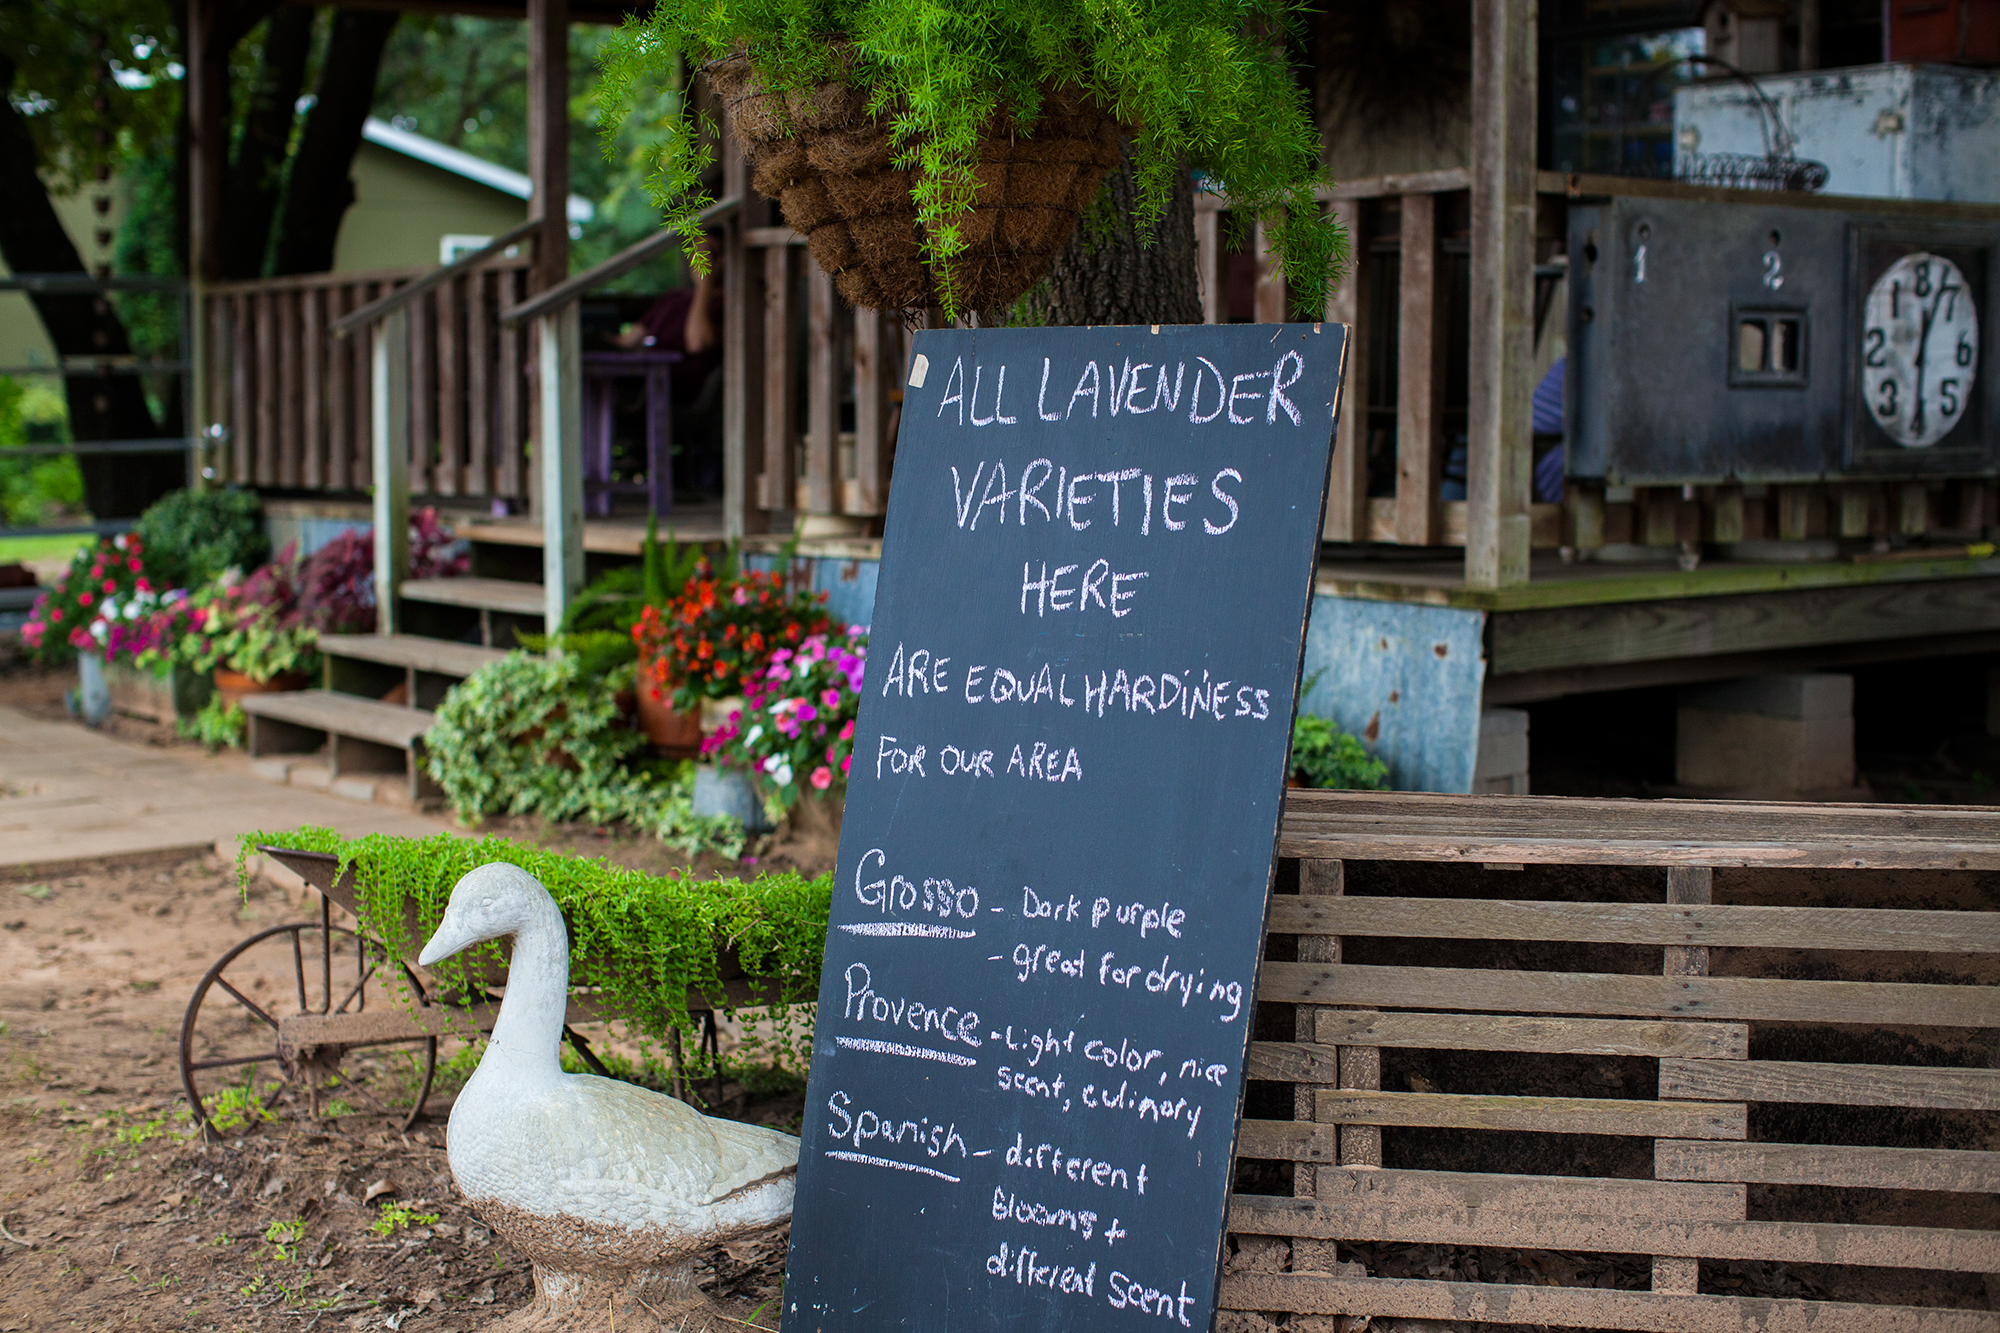 ALL LAVENDER
VARIETIES
HERE
ARE EQUAL HARDINESS
FOR OUR AREA
Grosso - Dark purple
- great for drying
Provence - Light color, nice
scent, culinary
Spanish - different
Blooms +
different scent
1 2
8
1 7
2 6
3 5
4